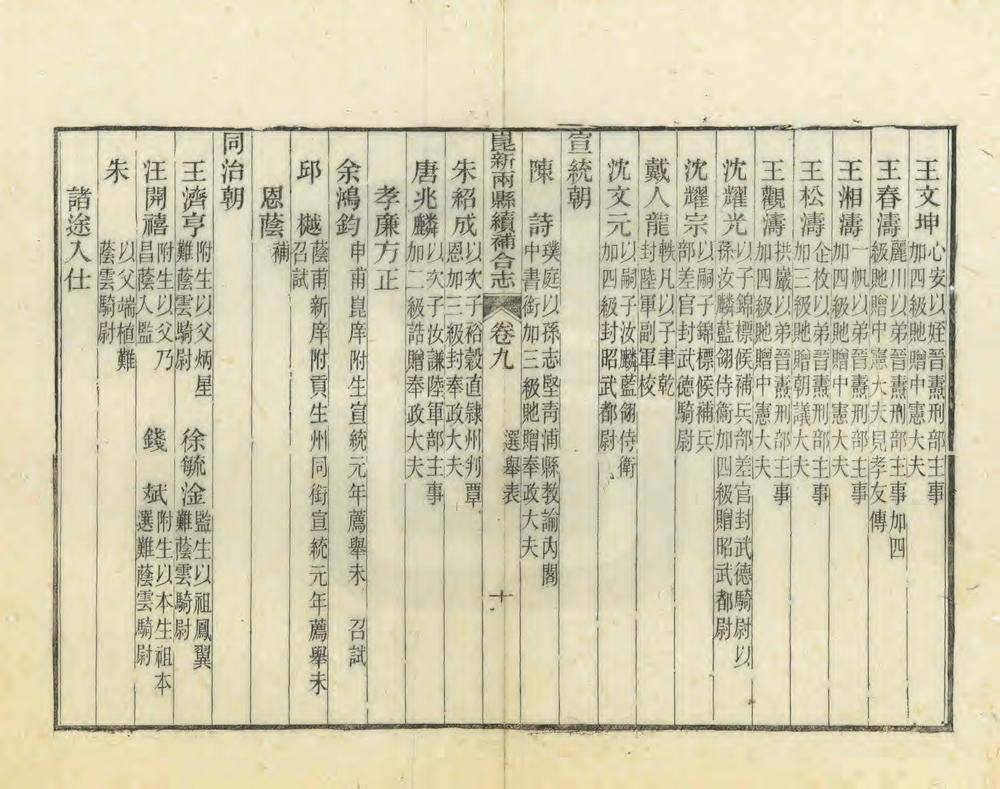 王文坤心安以姪晉燾刑部主事
加四級貤贈中憲大夫
王春濤麗川以弟晉燾刑部主事加四
級貤贈中憲大夫見孝友傳
王湘濤一帆以弟晉燾刑部主事
加四級貤贈中憲大夫
王松濤企枚以弟晉燾刑部主事
加三級貤贈朝議大夫
王觀濤拱巖以弟晉燾刑部主事
加四級貤贈中憲大夫
沈耀光以子錦標候補兵部差官封武德騎尉以
孫汝麟藍翎侍衞加四級贈昭武都尉
沈耀宗以嗣子錦標候補兵
部差官封武德騎尉
戴人龍軼凡以子聿乾
封陸軍副軍校
沈文元以嗣子汝麟藍翎侍衞
加四級封昭武都尉
宣統朝
陳詩璞庭以孫志堅青浦縣教諭內閣
中書銜加三級貤贈奉政大夫
崑新兩縣續補合志 卷九 選舉表 十
朱紹成以次子裕穀直隸州判覃
恩加三級封奉政大夫
唐兆麟以次子汝謙陸軍部主事
加二級誥贈奉政大夫
孝廉方正
余鴻鈞申甫崑庠附生宣統元年薦舉未 召試
邱樾蔭甫新庠附貢生州同銜宣統元年薦舉未
召試
恩蔭補
同治朝
王濟亨附生以父炳星
難蔭雲騎尉
徐毓淦監生以祖鳳翼
難蔭雲騎尉
汪開禧附生以父乃
昌蔭入監
錢斌附生以本生祖本
選難蔭雲騎尉
朱以父端植難
蔭雲騎尉
諸途入仕